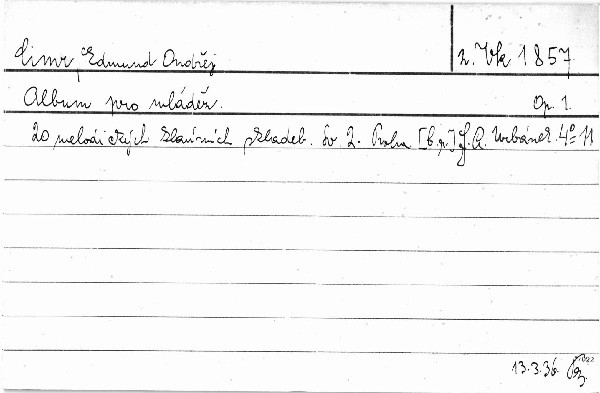 Cimr, Edmund Ondřej
2. Vk 1857
Album pro mládež. Op. 1.
20 melodických klavírních skladeb. Sv. 2. Praha [b.r.] F. A. Urbánek. 4° 11
13.3.36.